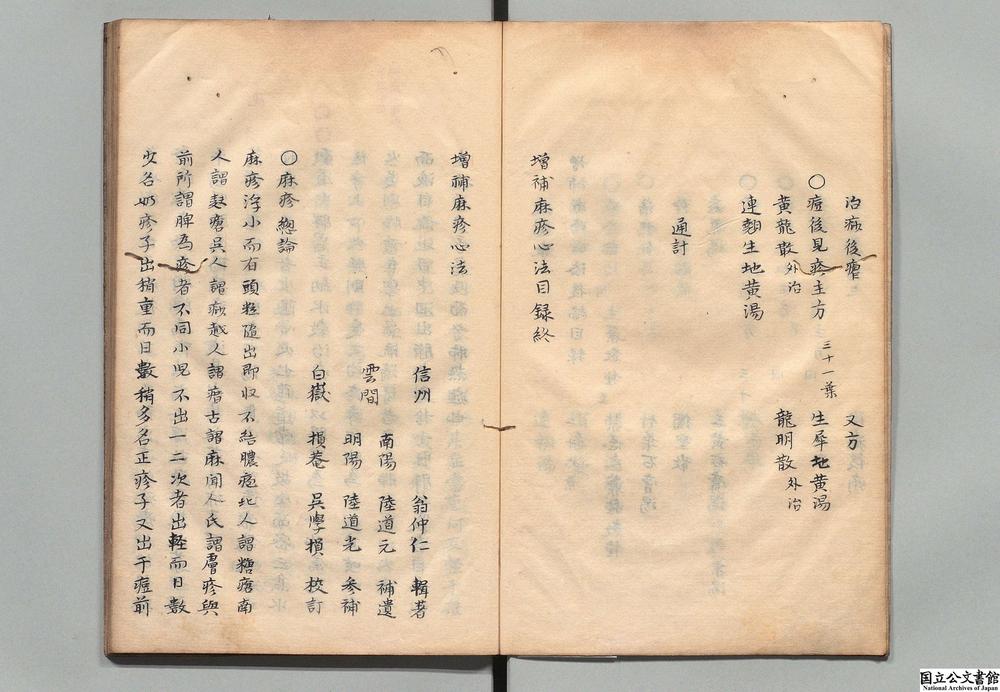 治癍後瘡
又方
○痘後見疹主方 三十一葉
生犀地黄湯
黄龍散 外治
龍明散 外治
○連翹生地黄湯
通計
增補麻疹心法目録終
增補麻疹心法
信州 翁仲仁 輯著
南陽 陸道元 補遺
雲間
明陽 陸道光 參補
白嶽 損菴 吳學損 校訂
○麻疹總論
麻疹浮小而有頭粒隨出即収不結膿痘北人謂糖瘡南
人謂麩瘡吳人謂痧越人謂瘄古謂麻聞人氏謂膚疹與
前所謂脾為疹者不同小児不出一二次者出軽而日數
少名奶疹子出稍重而日數稍多名正疹子又出于痘前
国立公文書館
National Archives of Japan